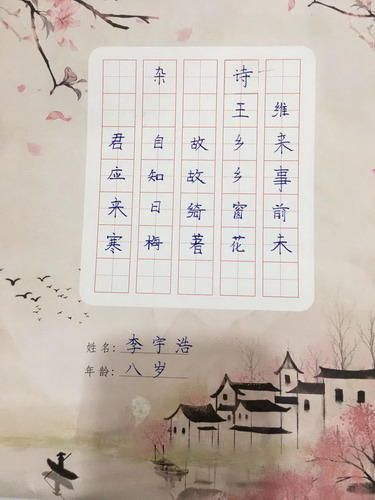 杂 诗
王 维
君 自 故 乡 来
应 知 故 乡 事
来 日 绮 窗 前
寒 梅 著 花 未
姓名: 李宇浩
年龄: 八岁